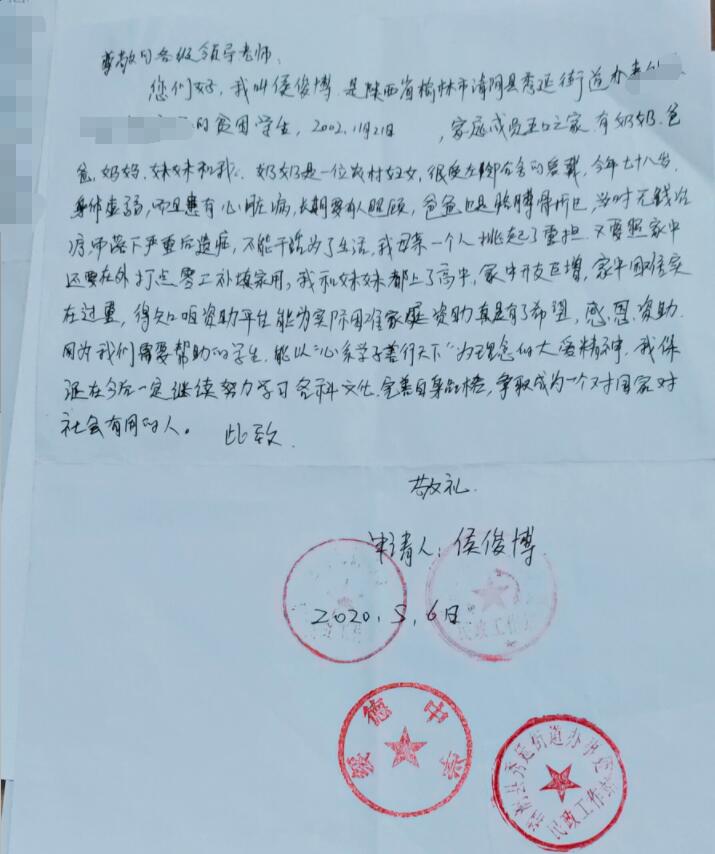 尊敬的各级领导老师:
您们好,我叫侯俊博,是陕西省榆林市清涧县秀延街道办
的贫困学生,2002,11月21日,家庭成员五口之家,有奶奶、爸
爸、妈妈、妹妹和我。奶奶是一位农村妇女,很受左邻右舍的爱戴,今年七十八岁,
身体虚弱,而且患有心脏病,长期要人照顾,爸爸也是胳膊骨折也,当时无钱治
疗,而落下严重后遗症,不能干活为了生活,我母亲一个人挑起了重担,又要照家中
还要在外打点零工补填家用,我和妹妹都上了高中,家中开支巨增,家中困难实
在过重,得知咱资助平台能为实际困难家庭资助真是有了希望,感恩资助
因为我们需要帮助的学生,能以“心系学子善行天下”为理念的大爱精神,我保
证在今后一定继续努力学习各科文化,完善自身品格,争取成为一个对国家对
社会有用的人。 此致
敬礼
申请人:侯俊博
2020.5.6日
民政工作
德中学
县秀延街道办事处
民政工作站